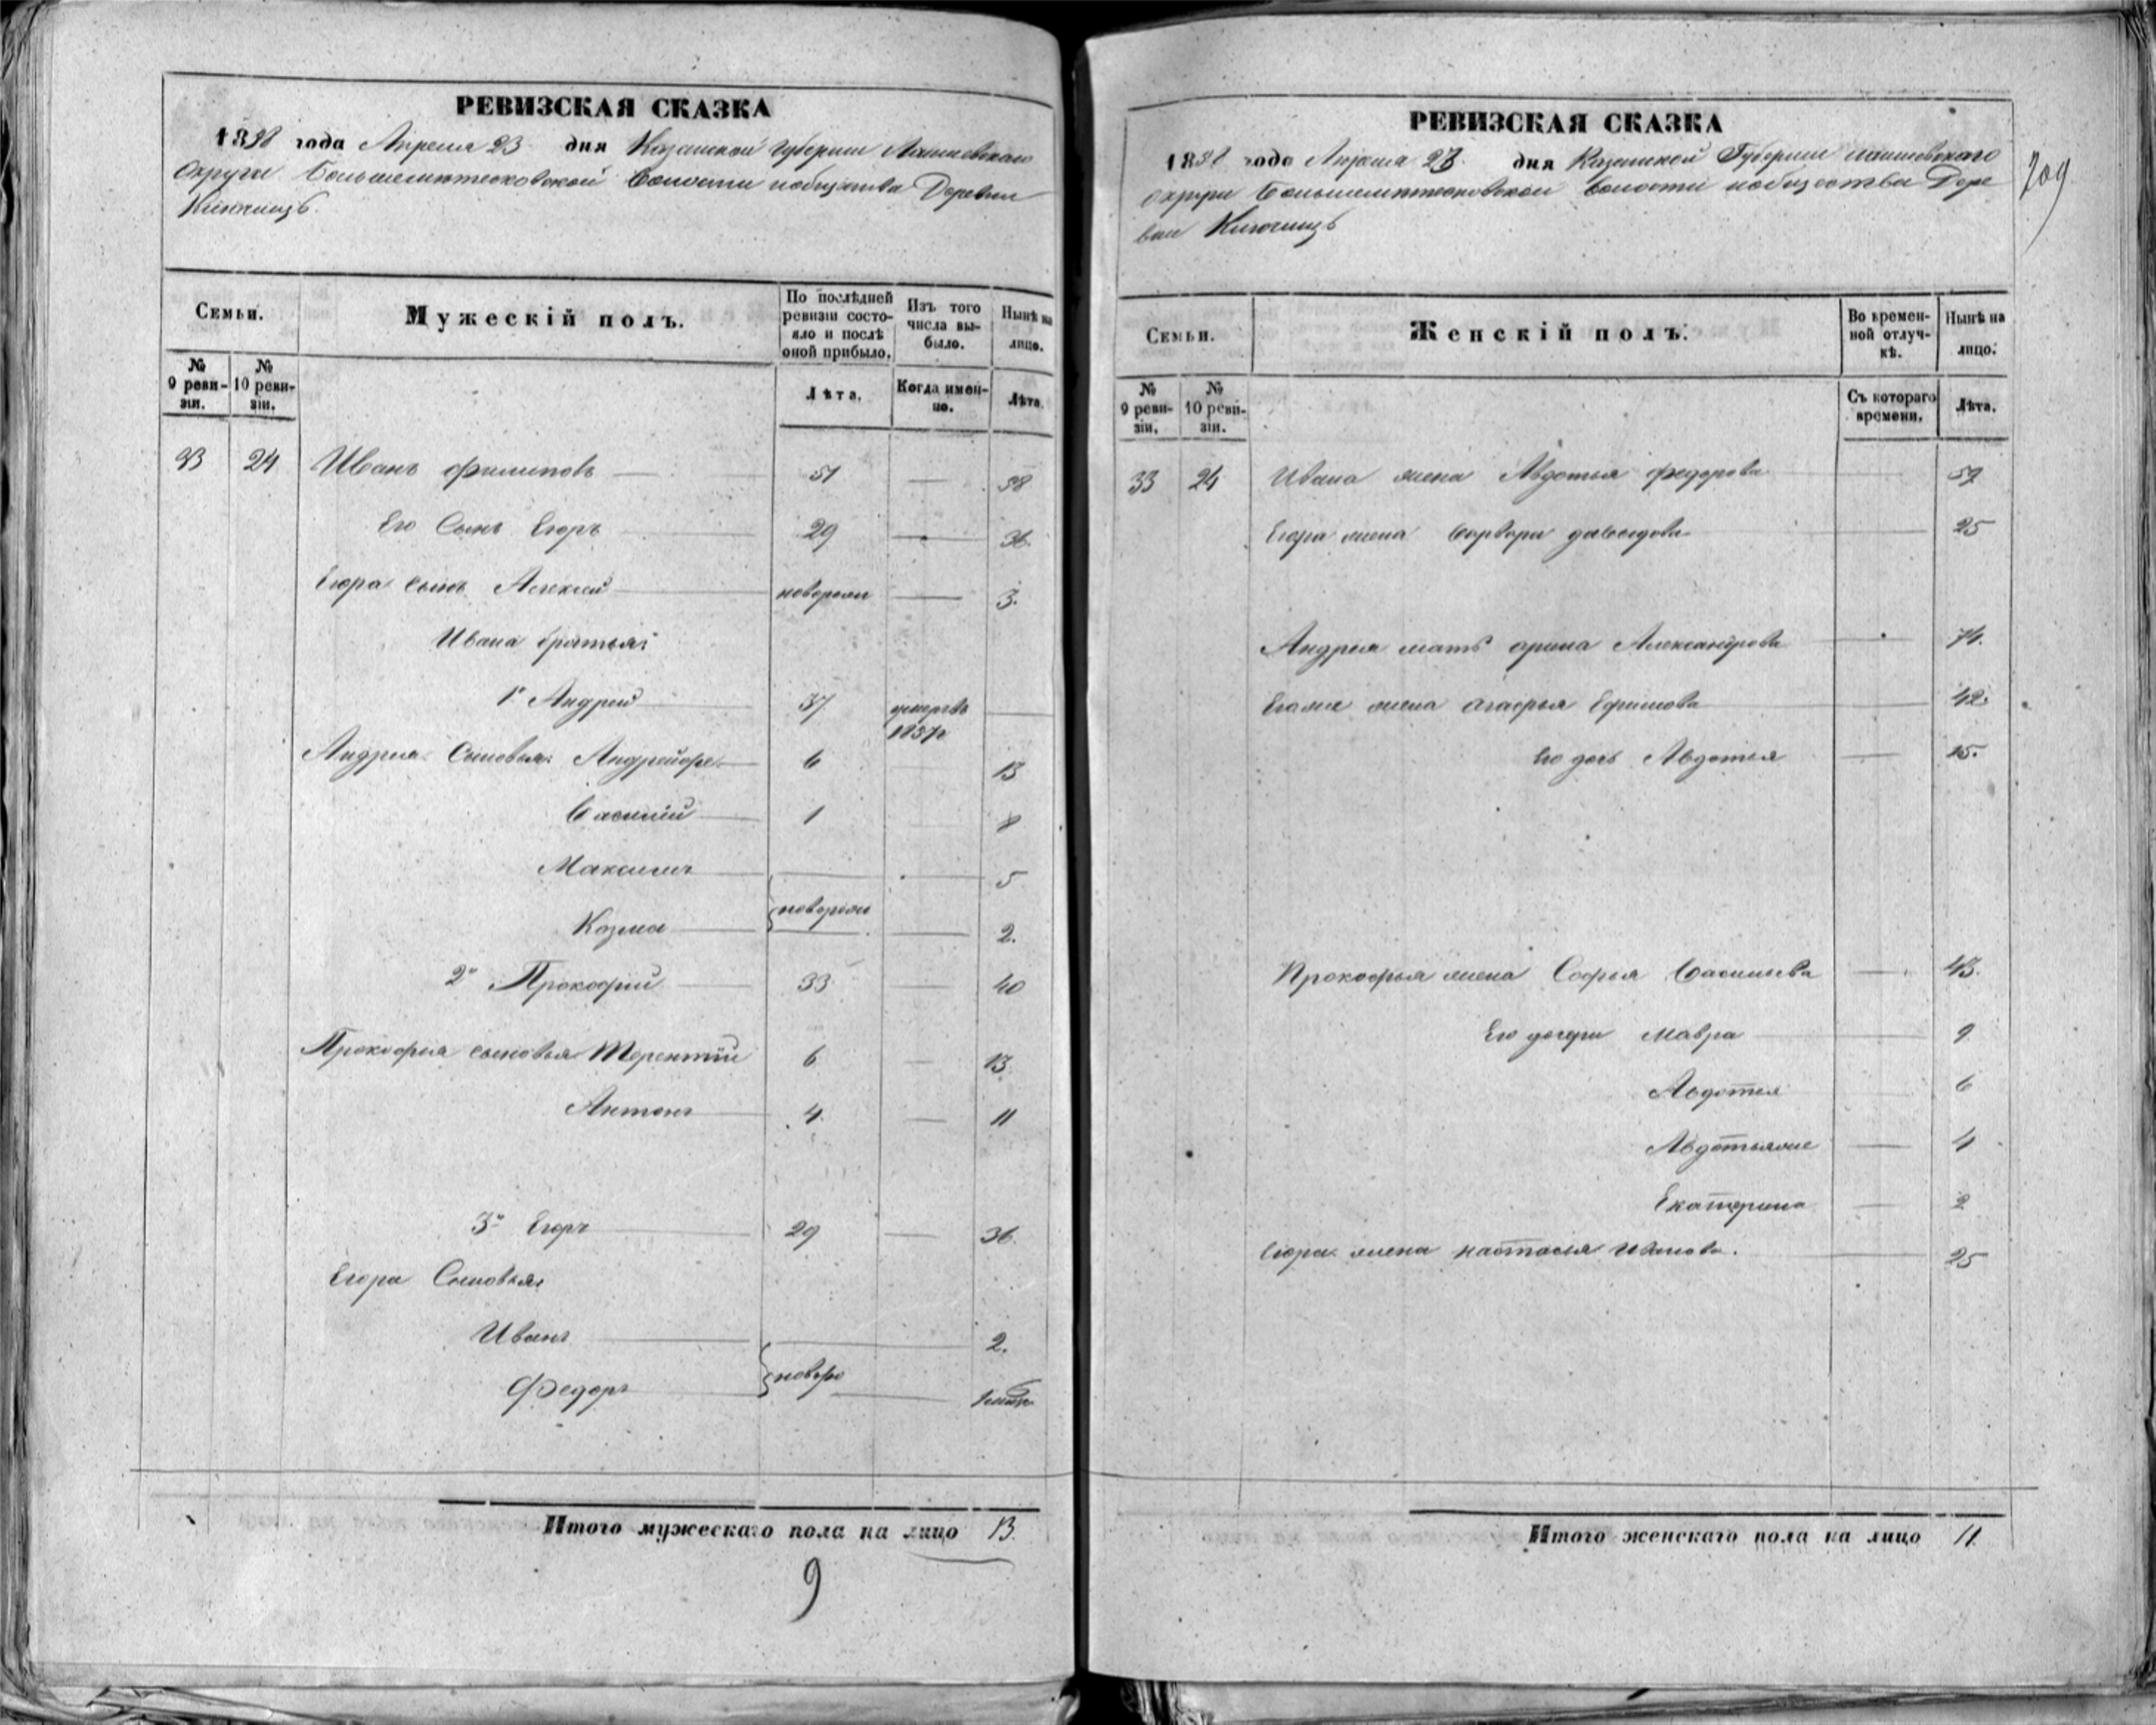 РЕВИЗСКАЯ СКАЗКА
1858 года Апреля 23 дня Казанской Губернии Лаишевского
округи Волости и общества Деревни
Ключищъ.
Семьи.
Мужескій полъ.
По послѣдней ревизіи состояло и послѣ оной прибыло.
Изъ того числа выбыло.
Нынѣ на лицо.
№ 9 ревизіи.
№ 10 ревизіи.
Лѣта.
Когда именно.
Лѣта.
33 24 Иванъ Филиповъ 51 — 58
Его Сынъ Егоръ 29 — 36.
Егора сынъ Алексей новорожн — 3.
Ивана братья:
1й Андрей 37 1857г —
Андрея Сыновья: Андрей 6 13
Василій 1 8
Максимъ — 5
новорожн
Козма — 2.
2й Прокофий 33 — 40
Прокофья сыновья Терентiй 6 — 13.
Антонъ 4. — 11
3й Егоръ 29 — 36.
Егора Сыновья:
Иванъ 2.
новоро
Федоръ
Итого мужескаго пола на лицо 13.
9
РЕВИЗСКАЯ СКАЗКА
209
1858 года Апреля 23 дня Казанской Губернии Лаишевского
округи Волости и общества Дере
вни Ключищъ
Семьи.
Женскій полъ.
Во временной отлучкѣ.
Нынѣ на лицо.
№ 9 ревизіи.
№ 10 ревизіи.
Съ котораго времени.
Лѣта.
33 24 Ивана жена Авдотья Федорова — 59
Егора жена Варвара давыдова — 25
Андрея мать арина Александрова — 74.
Его же жена агафья Ефимова — 42.
Его дочь Авдотья — 15.
Прокофья жена Софья Васильева — 43.
Его дочери Мавра 9
Авдотья 6
Авдотья же — 4
Екатерина — 2
Егора жена настасья Иванова. 25
Итого женскаго пола на лицо 11.